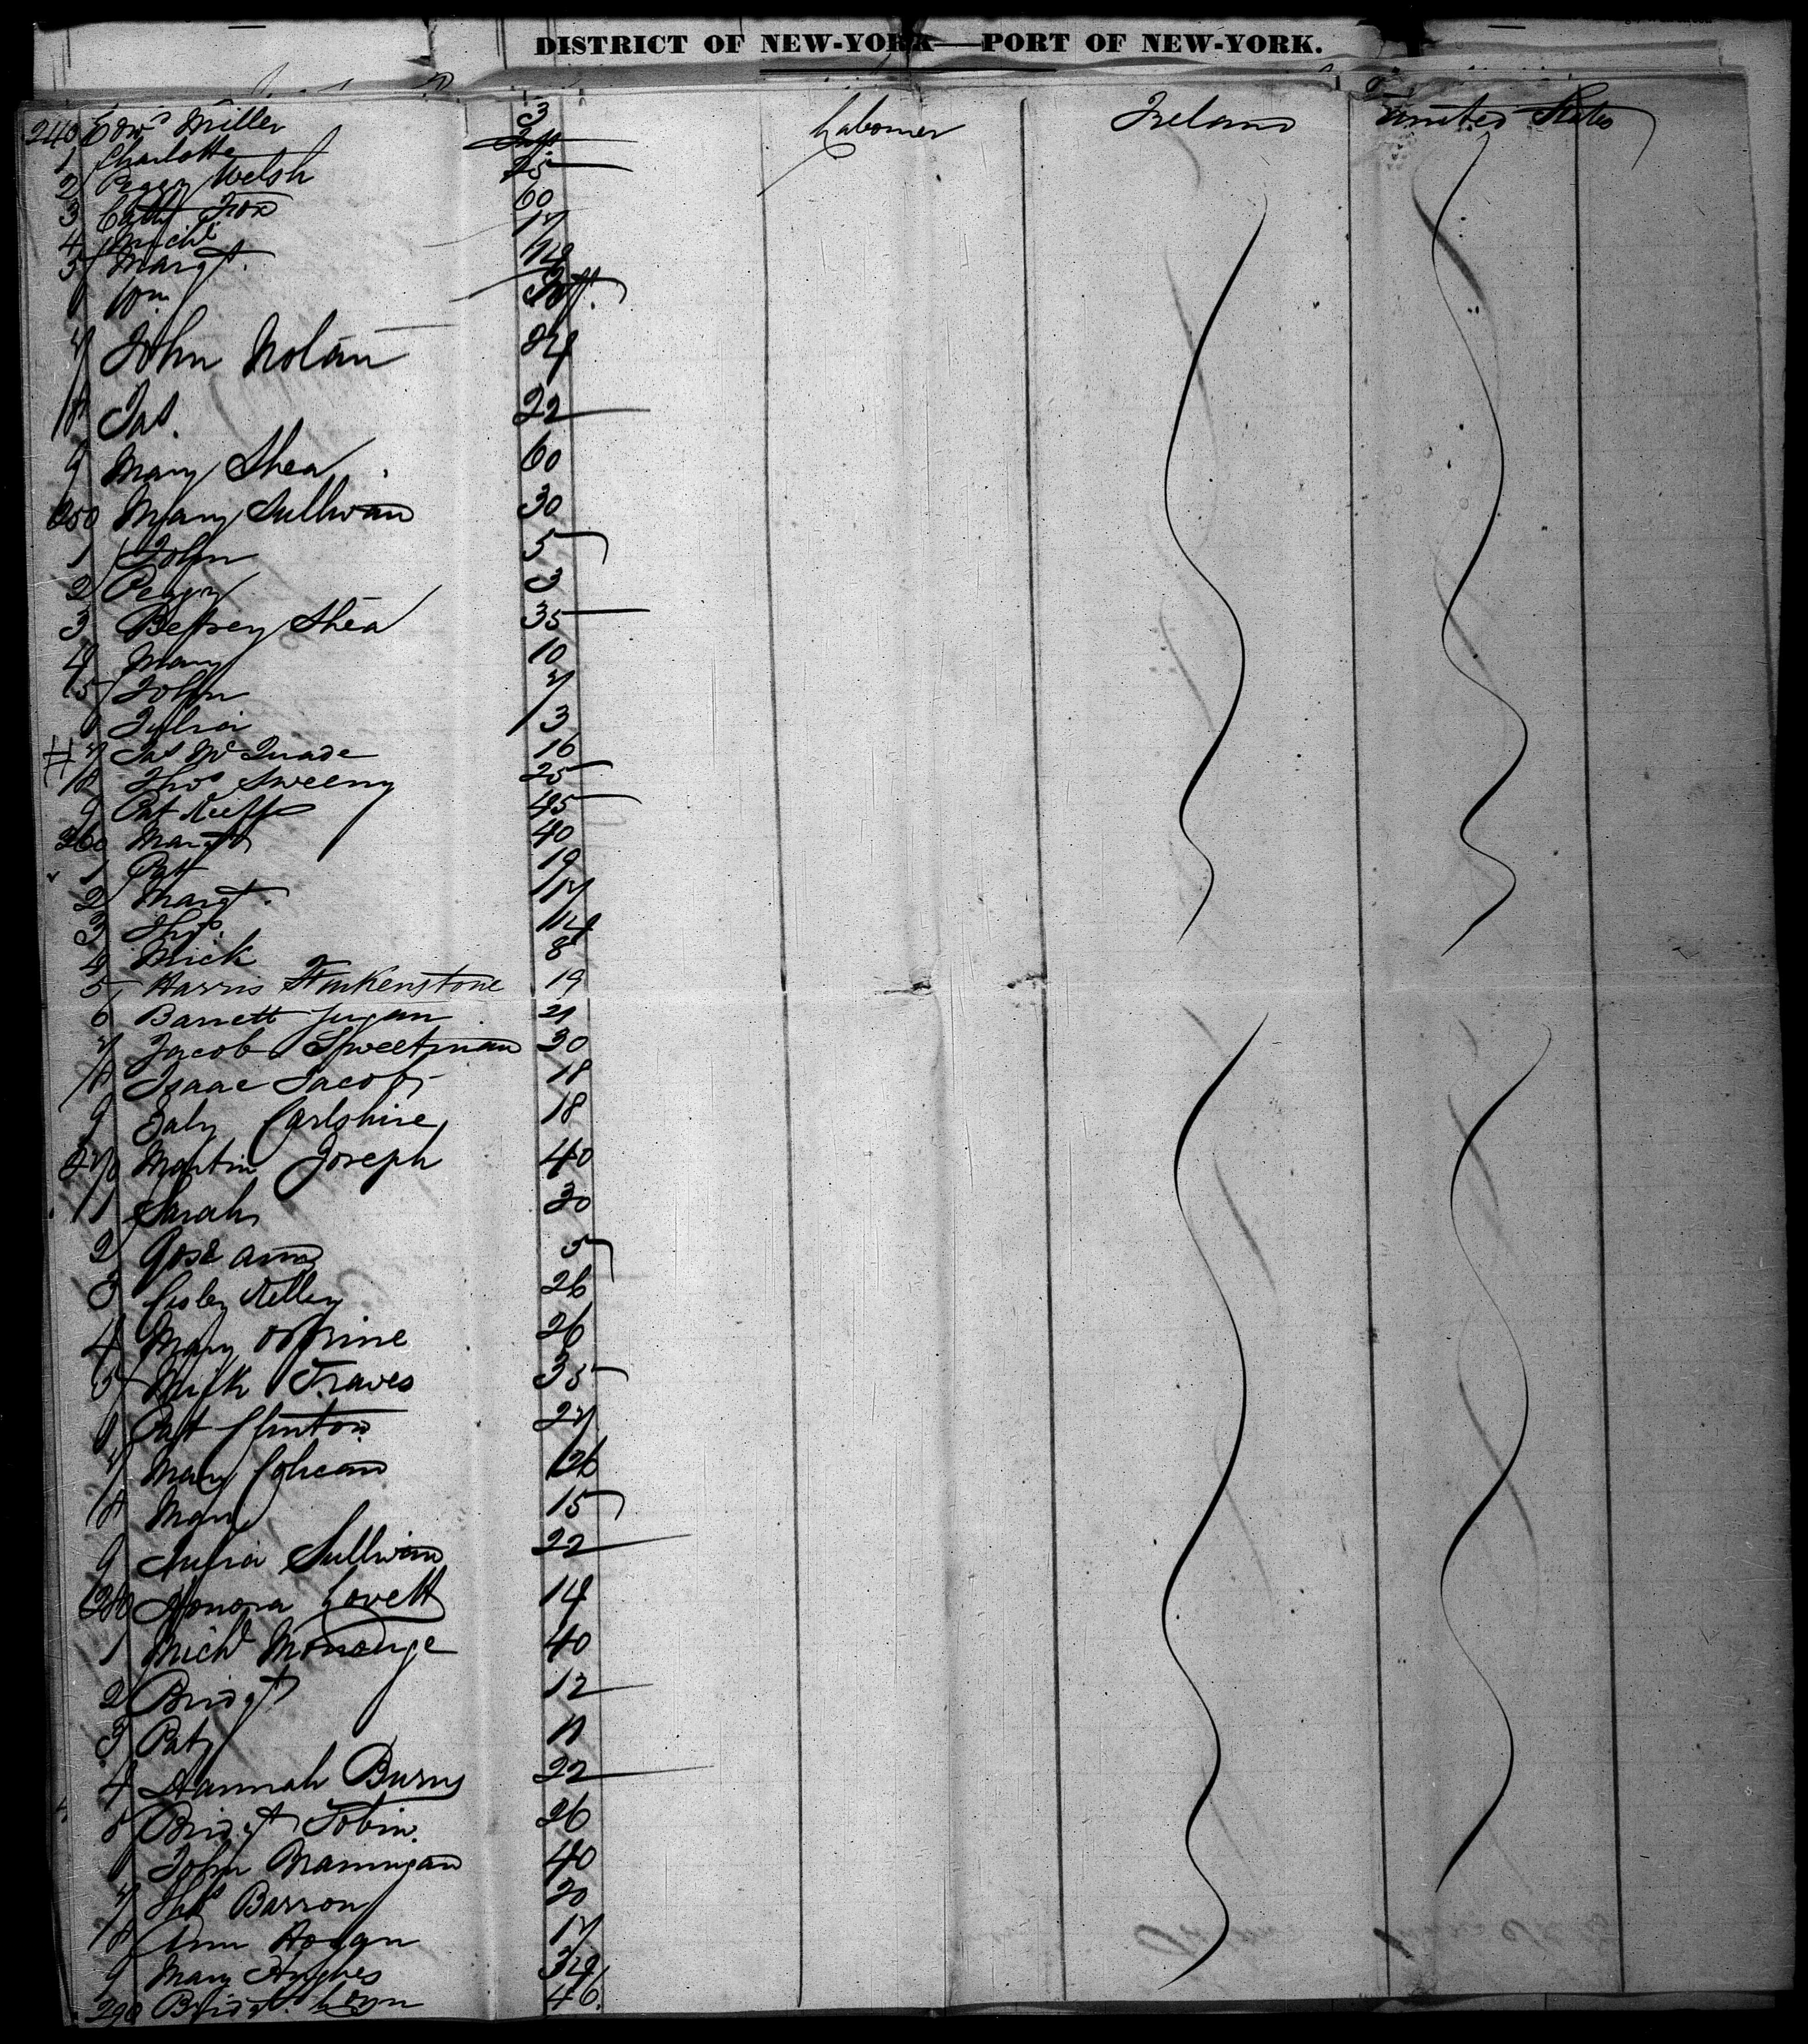 DISTRICT OF NEW-YORK—PORT OF NEW-YORK.
240 Edwd Miller 3 Labourer Ireland United States
1 Charlotte Inft
2 Peggy Welsh 25
3 Cath 60
4 Michl 17
5 Margt.
6 Wm. Inft.
7 John Nolan 24
8 Jas. 22
9 Mary Shea 60
250 Mary Sullivan 30
1 John 5
2 Peggy 3
3 Betsey Shea 35
4 Mary 10
5 John 7
6 Julia 3
7 Jas McQuade 16
8 Thos Sweeny 25
9 Pat Keeffe 45
260 Margt 40
1 Pat 19
2 Margt. 17
3 Thos. 14
4 Mick 8
5 Harris Finkenstone 19
6 Barrett 21
7 Jacob Sweetman 30
8 Isaac Jacobs 18
9 18
270 Martin Joseph 40
1 Sarah 30
2 Rose Ann 5
3 Kelley 26
4 Mary O'Brine 26
5 Traves 35
6 Pat Clinton 27
7 Mary 26
8 Mary 15
9 Julia Sullivan 22
280 Honora Lovett 14
1 Michl 40
2 Bridgt 12
3 Pat 11
4 Hannah Burns 22
5 Bridgt Tobin. 26
6 John Brannigan 40
7 Thos Barron 20
8 Ann Hogan 17
9 Mary Hughes
290 Bridgt. 46